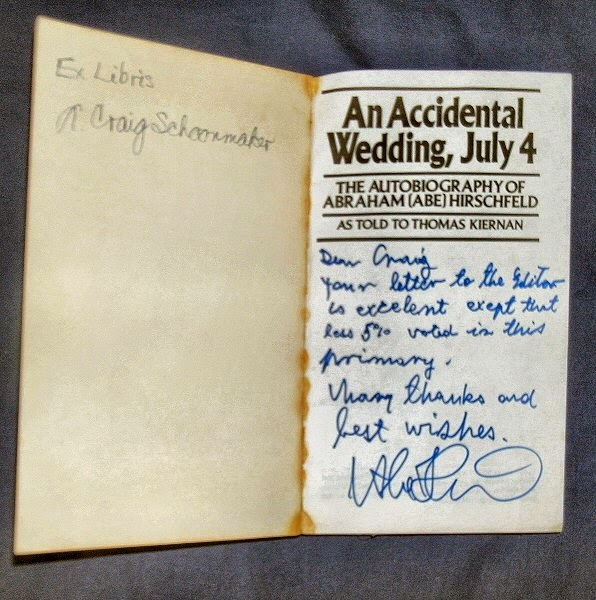 Ex Libris
Craig Schoonmaker
An Accidental
Wedding, July 4
THE AUTOBIOGRAPHY OF
ABRAHAM (ABE) HIRSCHFELD
AS TOLD TO THOMAS KIERNAN
Dear Craig
your letter to the Editor
is excelent exept that
less 5% voted in this
primary.
Many thanks and
best wishes.